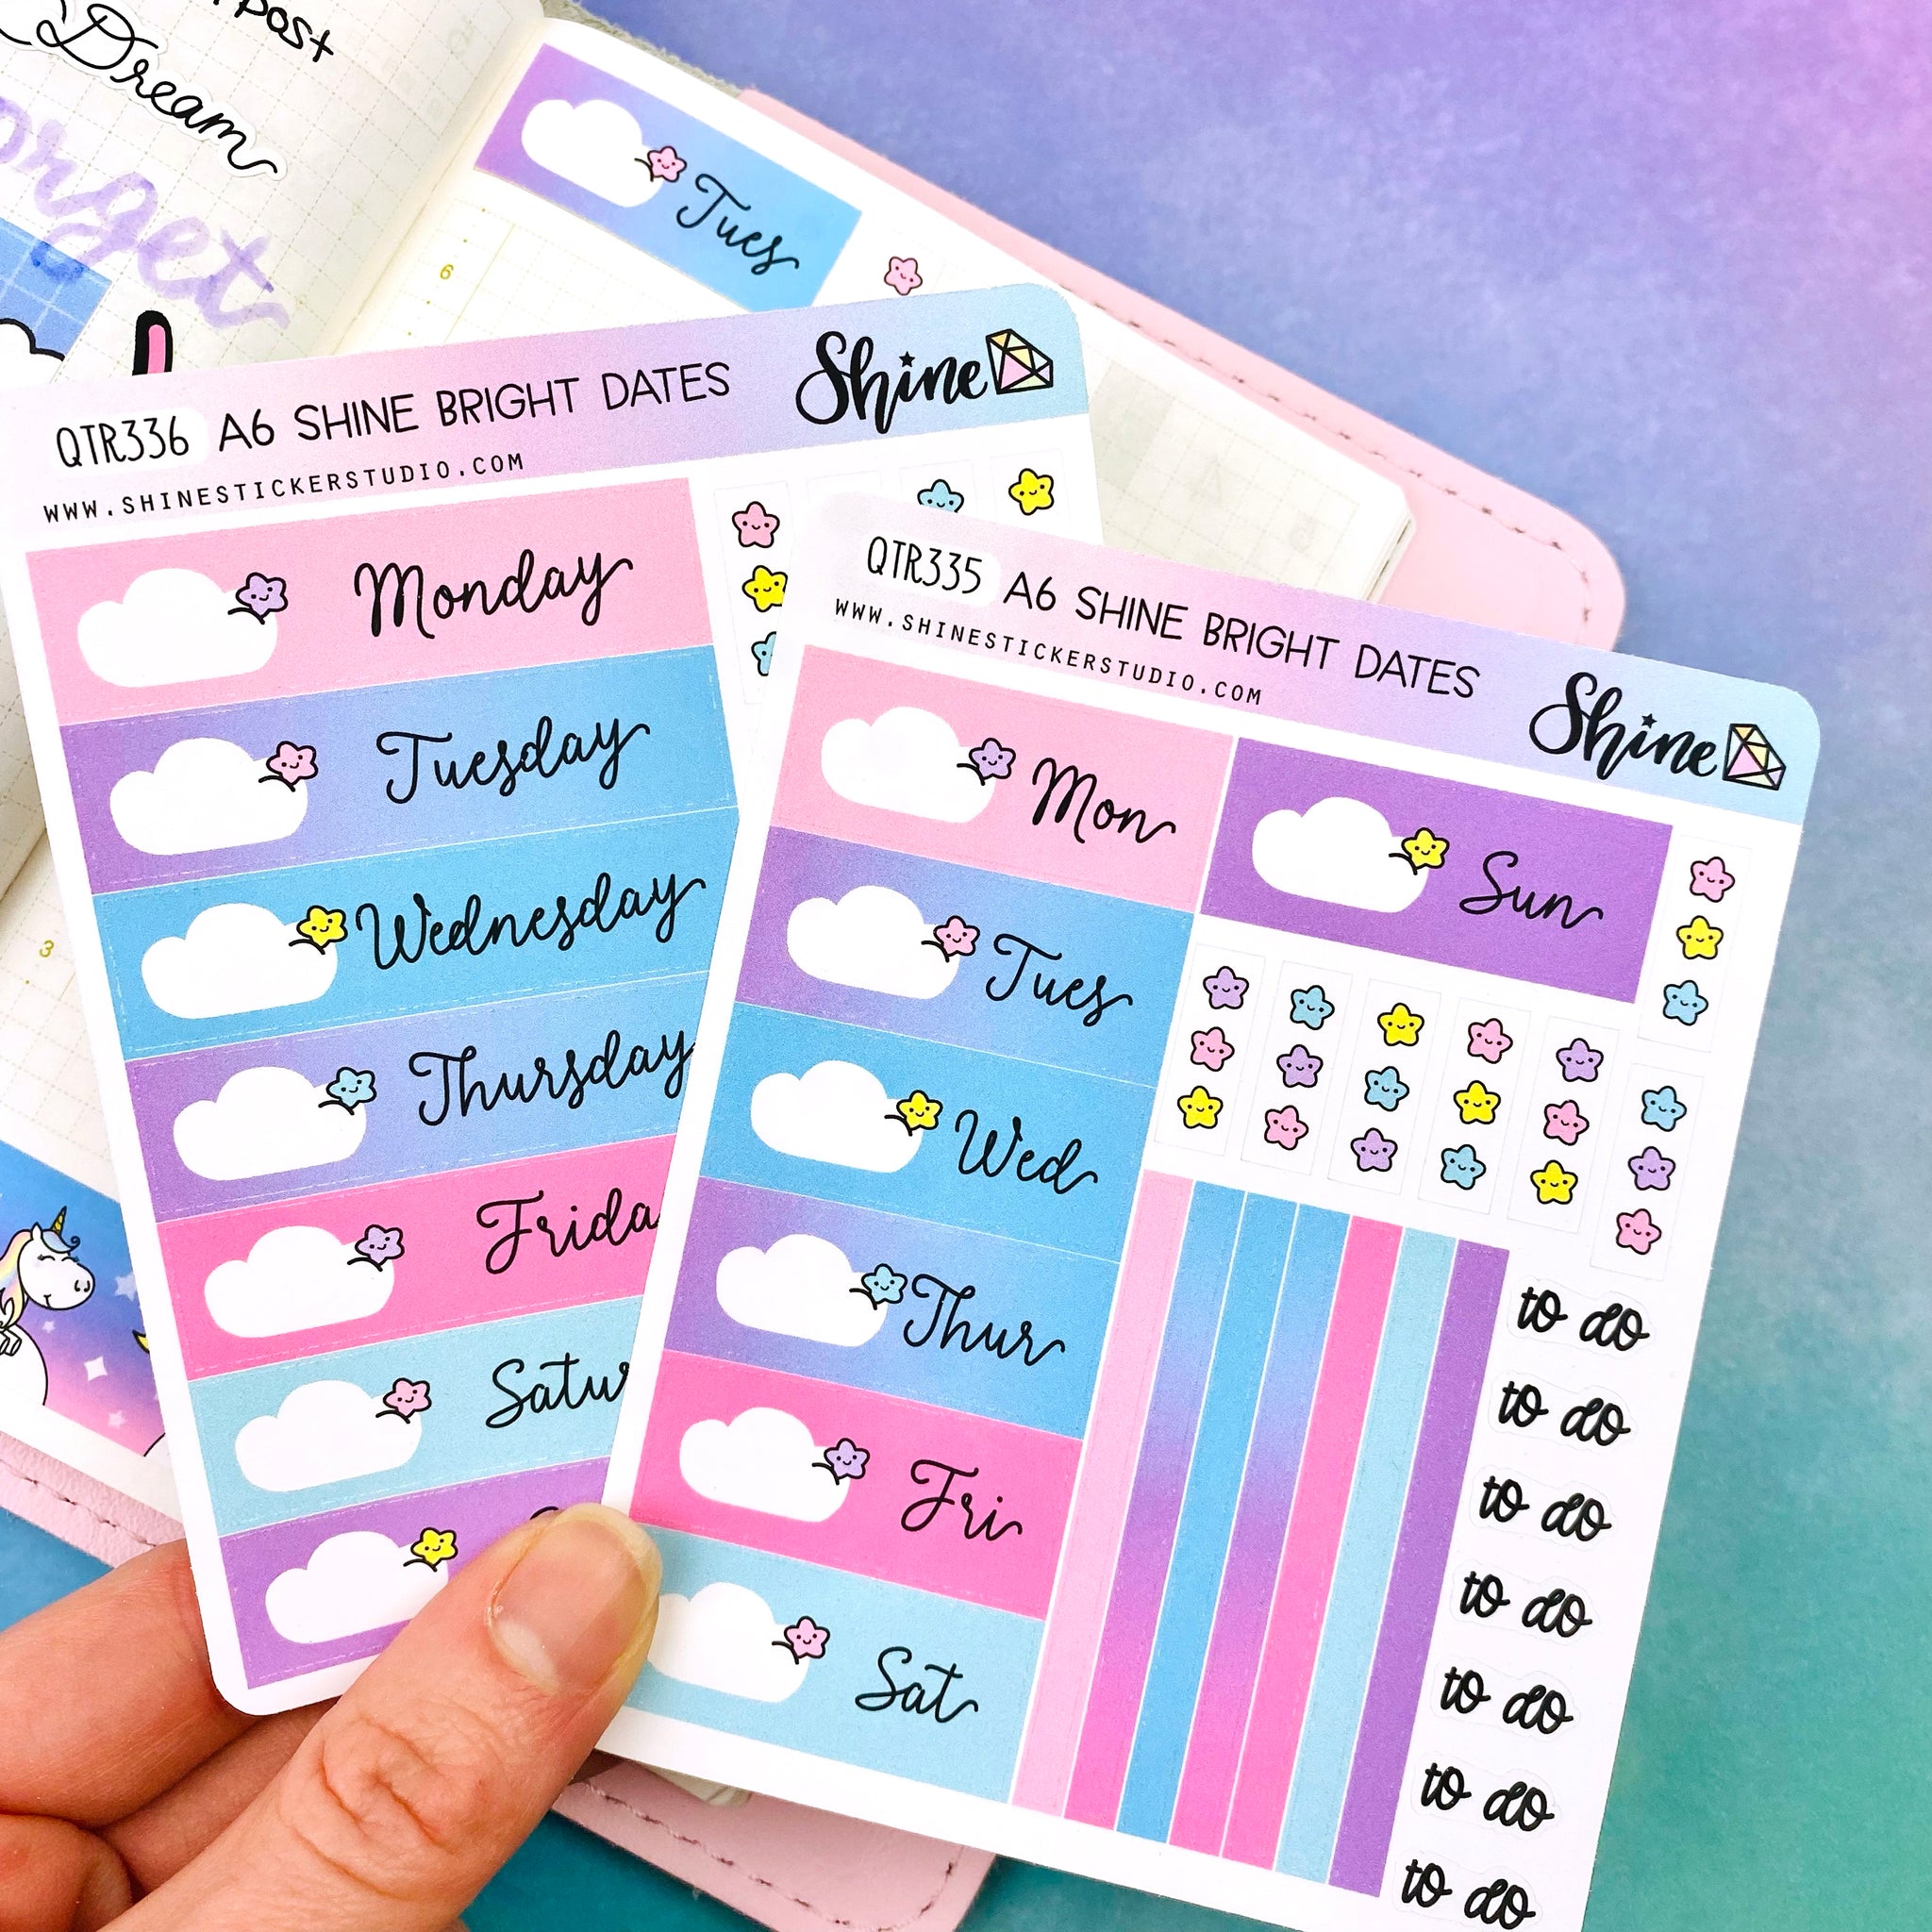 post
Dream
orget
Tues
6
3
QTR336 A6 SHINE BRIGHT DATES
Shine
WWW.SHINESTICKERSTUDIO.COM
Monday
Tuesday
Wednesday
Thursday
Frida
Satur
QTR335 A6 SHINE BRIGHT DATES
Shine
WWW.SHINESTICKERSTUDIO.COM
Mon
Sun
Tues
Wed
Thur
Fri
Sat
to do
to do
to do
to do
to do
to do
to do